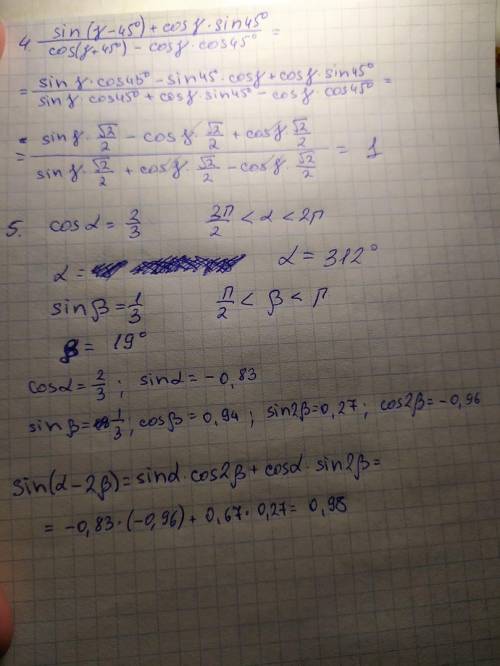 4. (sin(γ-45°) + cosγ·sin45°)/(cos(γ+45°) - cosγ·cos45°) =
= (sinγ·cos45° - sin45°·cosγ + cosγ·sin45°)/(sinγ·cos45° + cosγ·sin45° - cosγ·cos45°) =
= (sinγ·√2/2 - cosγ·√2/2 + cosγ·√2/2)/(sinγ·√2/2 + cosγ·√2/2 - cosγ·√2/2) = 1
5. cosα = 2/3 3π/2 < α < 2π
α = α = 312°
sinβ = 1/3 π/2 < β < π
β = 19°
cosα = 2/3; sinα = -0,83
sinβ = 1/3; cosβ = 0,94; sin2β = 0,27; cos2β = -0,96
sin(α-2β) = sinα·cos2β + cosα·sin2β =
= -0,83·(-0,96) + 0,67·0,27 = 0,98